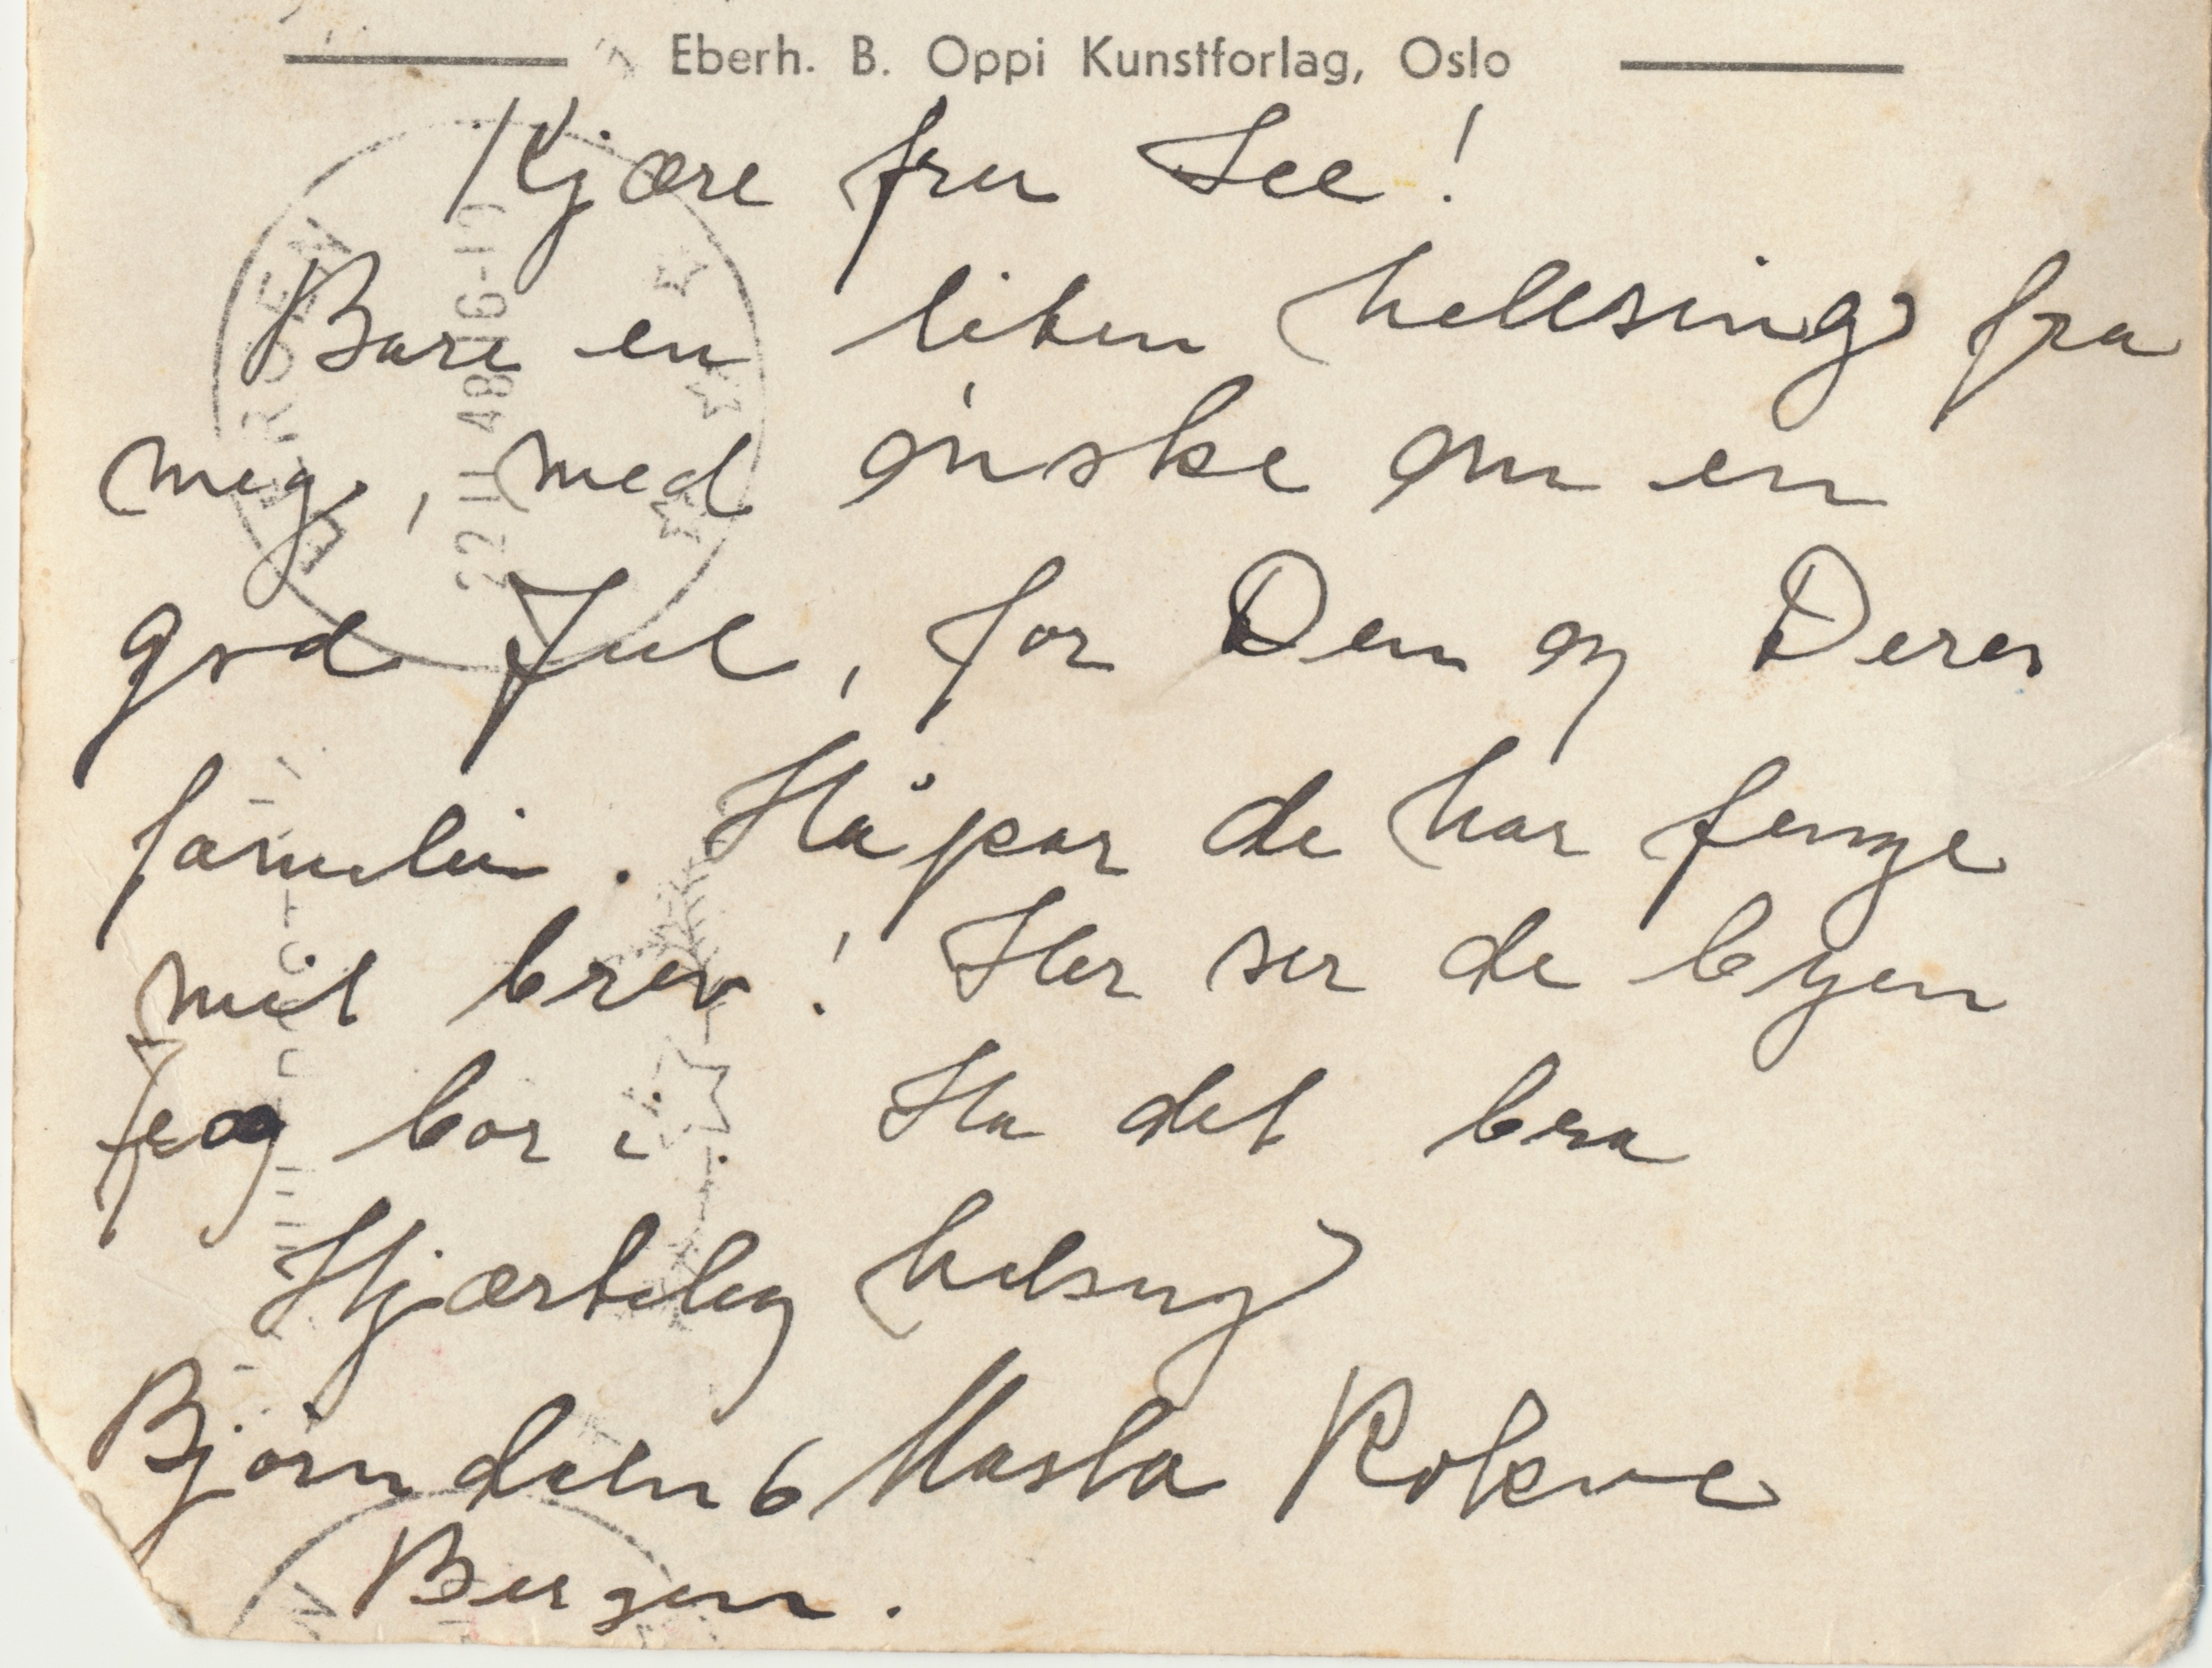 Eberh. B. Oppi Kunstforlag, Oslo
Kjære fru See!
Bare en liten hellsing fra
meg, med ønske om en
god Jul, for Dem og Deres
familie. Håpar de har fenge
mit brev! Her ser de byen
jeg bor i. Ha det bra
Hjærtelig helsing
Bjørndaln 6 Marta Rokne
Bergen.
BERGEN
22 11 48 16-17